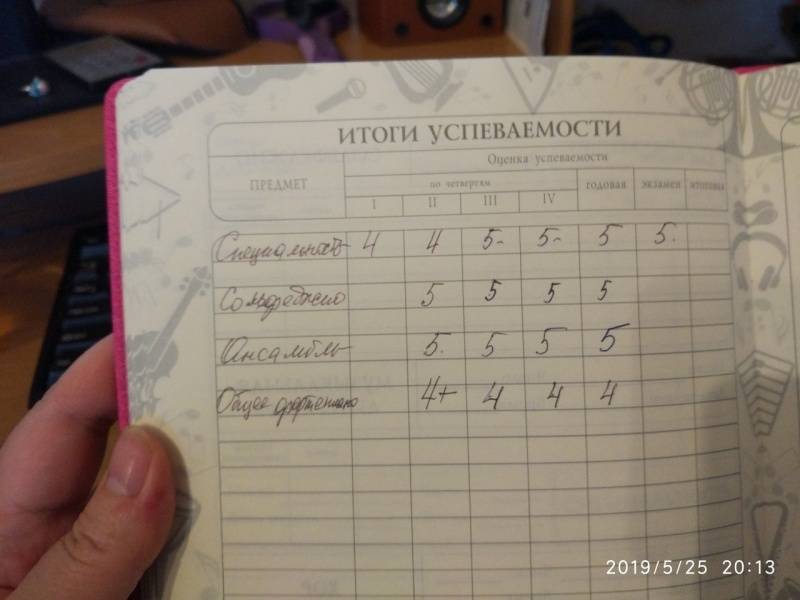 ИТОГИ УСПЕВАЕМОСТИ
ПРЕДМЕТ
Оценка успеваемости
по четвертям годовая экзамен итоговая
I II III IV
Специальность 4 4 5- 5- 5 5.
Сольфеджио 5 5 5 5
Ансамбль 5. 5 5 5
Общее фортепиано 4+ 4 4 4
2019/5/25 20:13